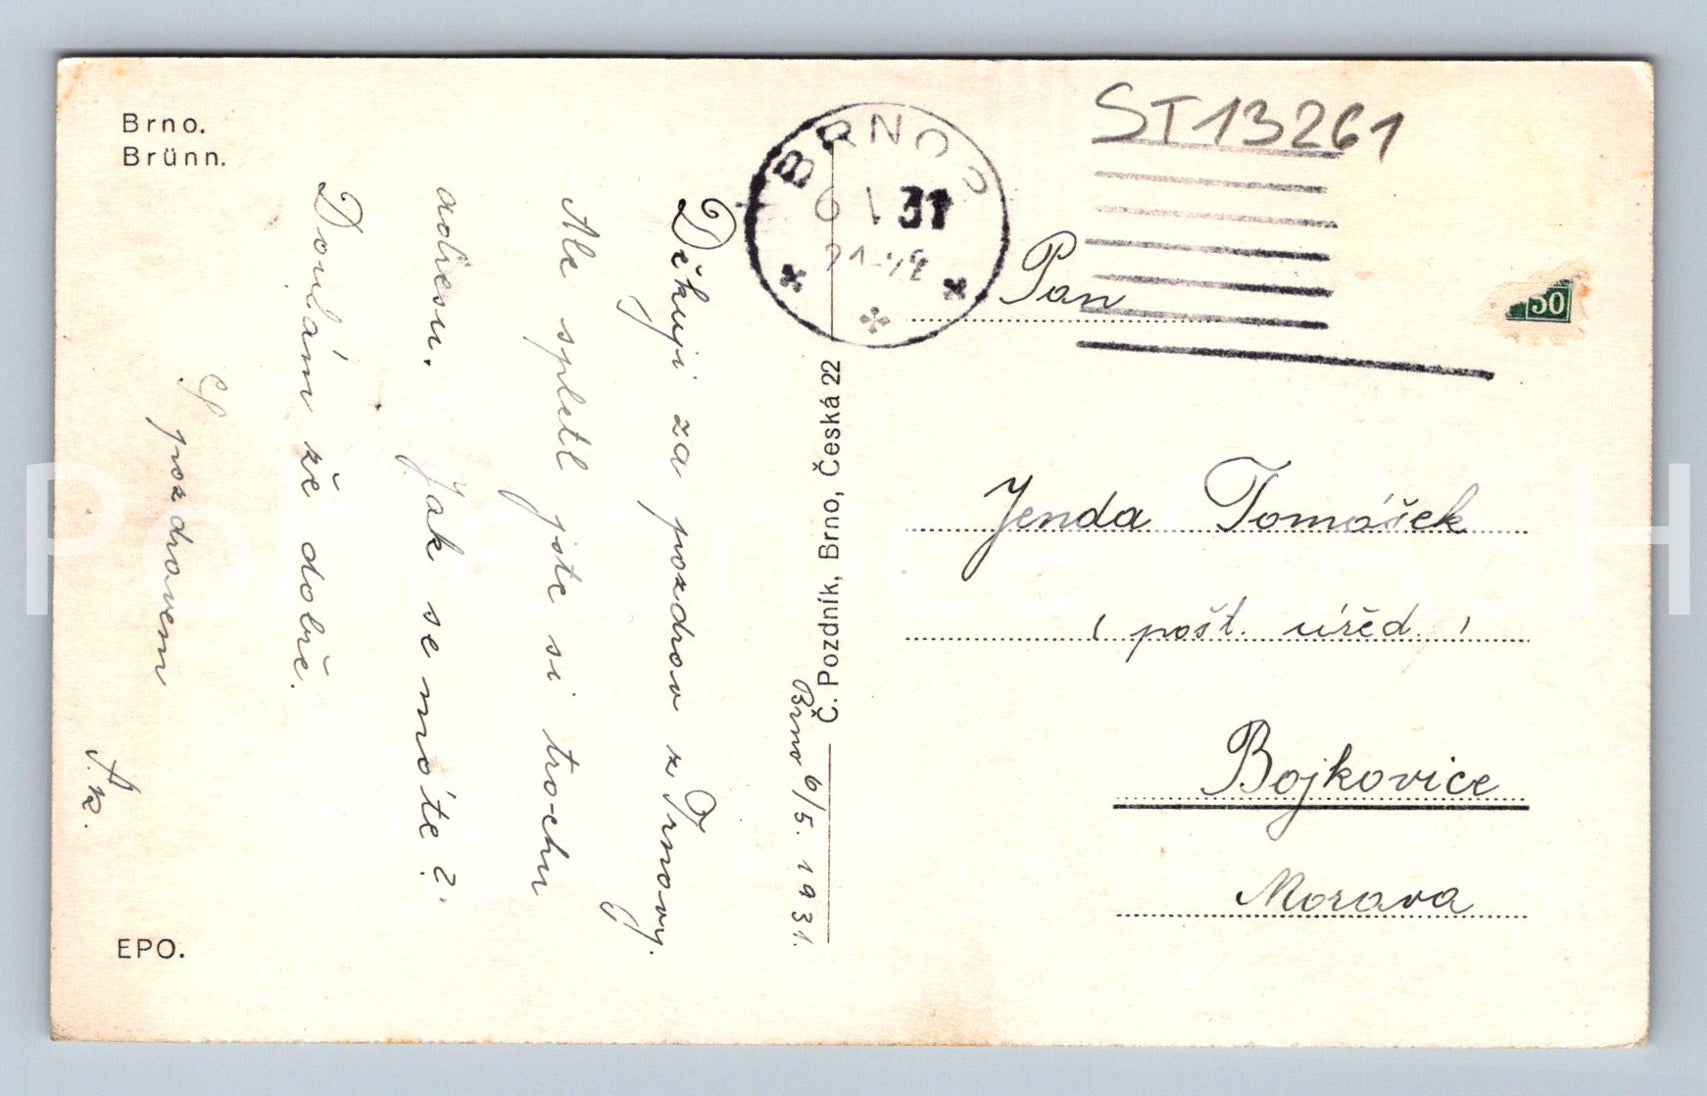 Brno.
Brünn.
Děkuji za pozdrav z Trnavy.
Ale spletl jste si trochu
adresu. Jak se máte?
Doufám že dobře.
S pozdravem
EPO.
Brno 6/5. 1931.
Č. Pozdník, Brno, Česká 22
BRNO 2
31
ST13261
50
Pan
Jenda Tomášek
( pošt. úřed. )
Bojkovice
Morava